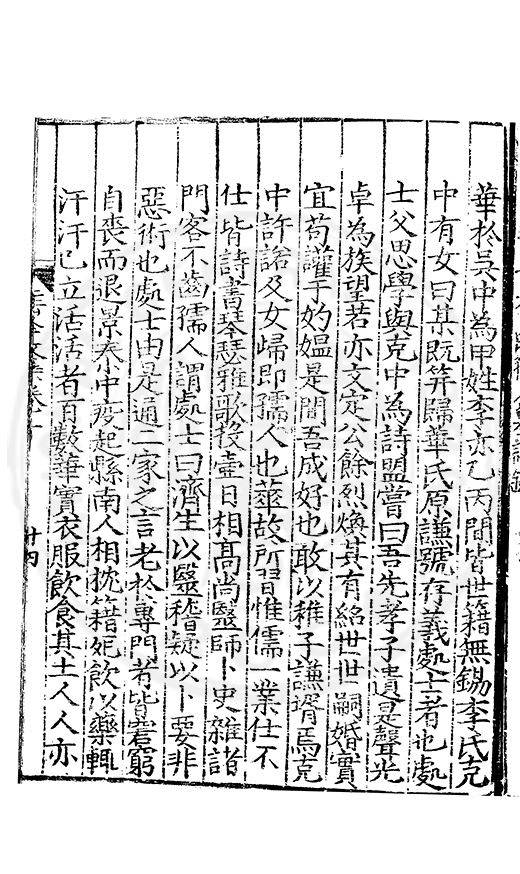 華於吳中為甲姓李亦乙丙間皆世籍無錫李氏克
中有女曰某既笄歸華氏原謙號存義處士者也處
士父思學與克中為詩盟嘗曰吾先孝子遺是聲光
卓為族望若亦文定公餘烈煥其有綌世世嗣婚實
宜苟讙于妁媼是間吾成好也敢以稚子謙壻焉克
中許諾及女歸即孺人也華故所習惟儒一業仕不
仕皆詩書琴瑟雅歌投壺日相高尚醫師卜史雜諸
門客不齒孺人謂處士曰濟生以醫稽疑以卜要非
惡術也處士由是通二家之言老於專門者皆若窮
自喪而退景泰中疫起縣南人相枕籍妃飲以藥輒
汗汗已立活活者百數華實衣服飲食其土人人亦